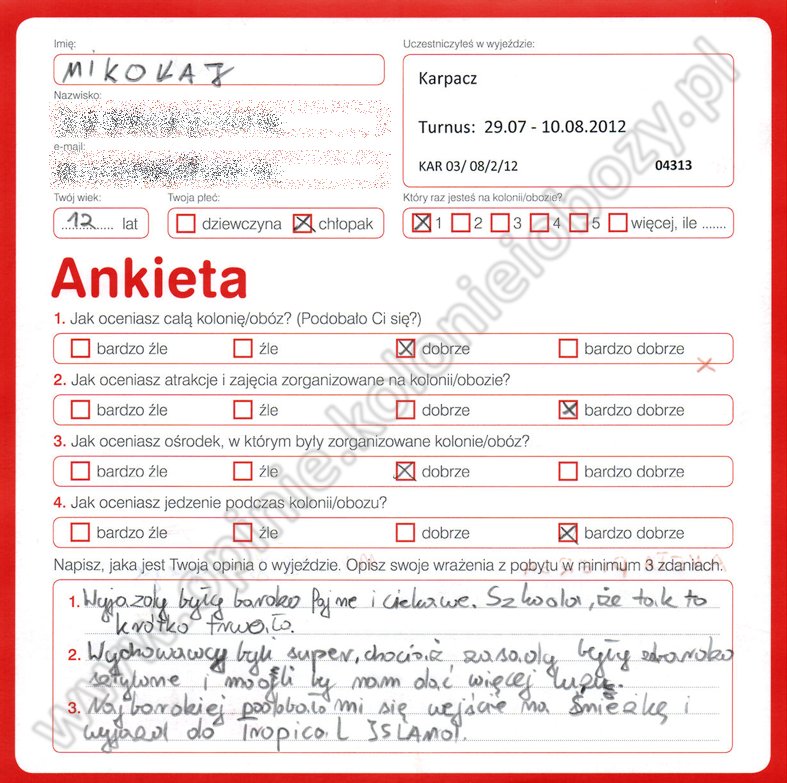 Imię:
MIKOŁAJ
Uczestniczyłeś w wyjeździe:
Karpacz
Turnus: 29.07 - 10.08.2012
KAR 03/ 08/2/12 04313
Nazwisko:
e-mail:
Twój wiek:
12 lat
Twoja płeć:
dziewczyna chłopak
Który raz jesteś na kolonii/obozie?
1 2 3 4 5 więcej, ile .......
Ankieta
1. Jak oceniasz całą kolonię/obóz? (Podobało Ci się?)
bardzo źle źle dobrze bardzo dobrze
2. Jak oceniasz atrakcje i zajęcia zorganizowane na kolonii/obozie?
bardzo źle źle dobrze bardzo dobrze
3. Jak oceniasz ośrodek, w którym były zorganizowane kolonie/obóz?
bardzo źle źle dobrze bardzo dobrze
4. Jak oceniasz jedzenie podczas kolonii/obozu?
bardzo źle źle dobrze bardzo dobrze
Napisz, jaka jest Twoja opinia o wyjeździe. Opisz swoje wrażenia z pobytu w minimum 3 zdaniach.
1. Wyjazdy były bardzo fajne i ciekawe. Szkoda, że tak to
krótko trwało.
2. Wychowawcy byli super, chociaż zasady były bardzo
sztywne i mogli by nam dać więcej luzu.
3. Najbardziej podobało mi się wejście na Śnieżkę i
wyjazd do Tropical ISLAND.
www.opinie.kolonieiobozy.pl